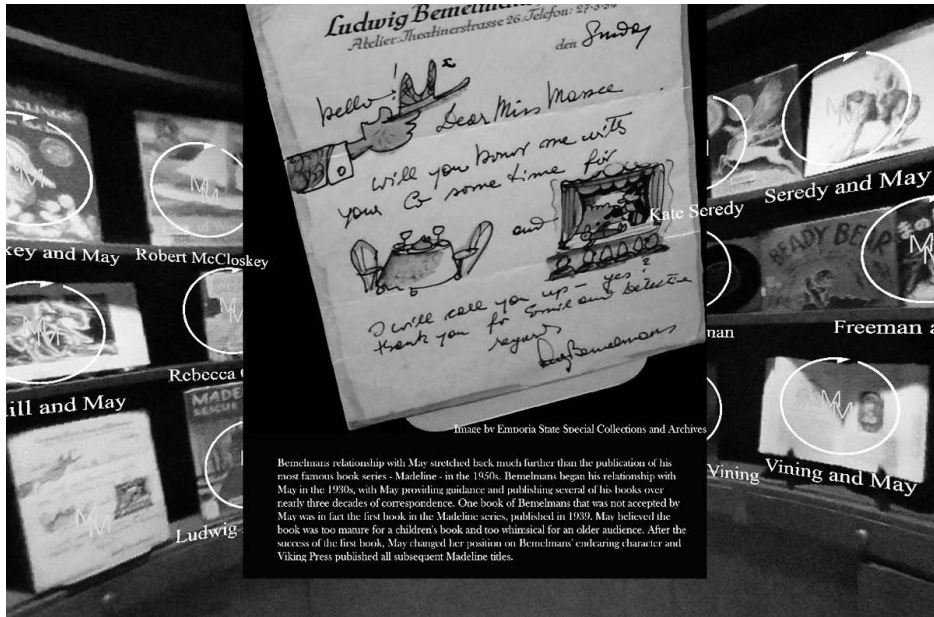 Ludwig Bemelmans
Atelier: Theatinerstrasse 26 / Telefon:
den Sunday
hello!
Dear Miss Massee
will you honor me with
your Co some time for
and
I will call you up – yes?
thank you for Emil and Detective
regards
Bemelmans
Image by Emporia State Special Collections and Archives
Bemelmans relationship with May stretched back much further than the publication of his
most famous book series - Madeline - in the 1950s. Bemelmans began his relationship with
May in the 1930s, with May providing guidance and publishing several of his books over
nearly three decades of correspondence. One book of Bemelmans that was not accepted by
May was in fact the first book in the Madeline series, published in 1939. May believed the
book was too mature for a children's book and too whimsical for an older audience. After the
success of the first book, May changed her position on Bemelmans' endearing character and
Viking Press published all subsequent Madeline titles.
KLINGS
MM
key and May
Robert McCloskey
MM
Rebecca
ill and May
MADE
RESCUE
MM
Ludwig
MM
Kate Seredy
Seredy and May
BEADY BEAR
MM
nan
Freeman a
MM
Vining
Vining and May